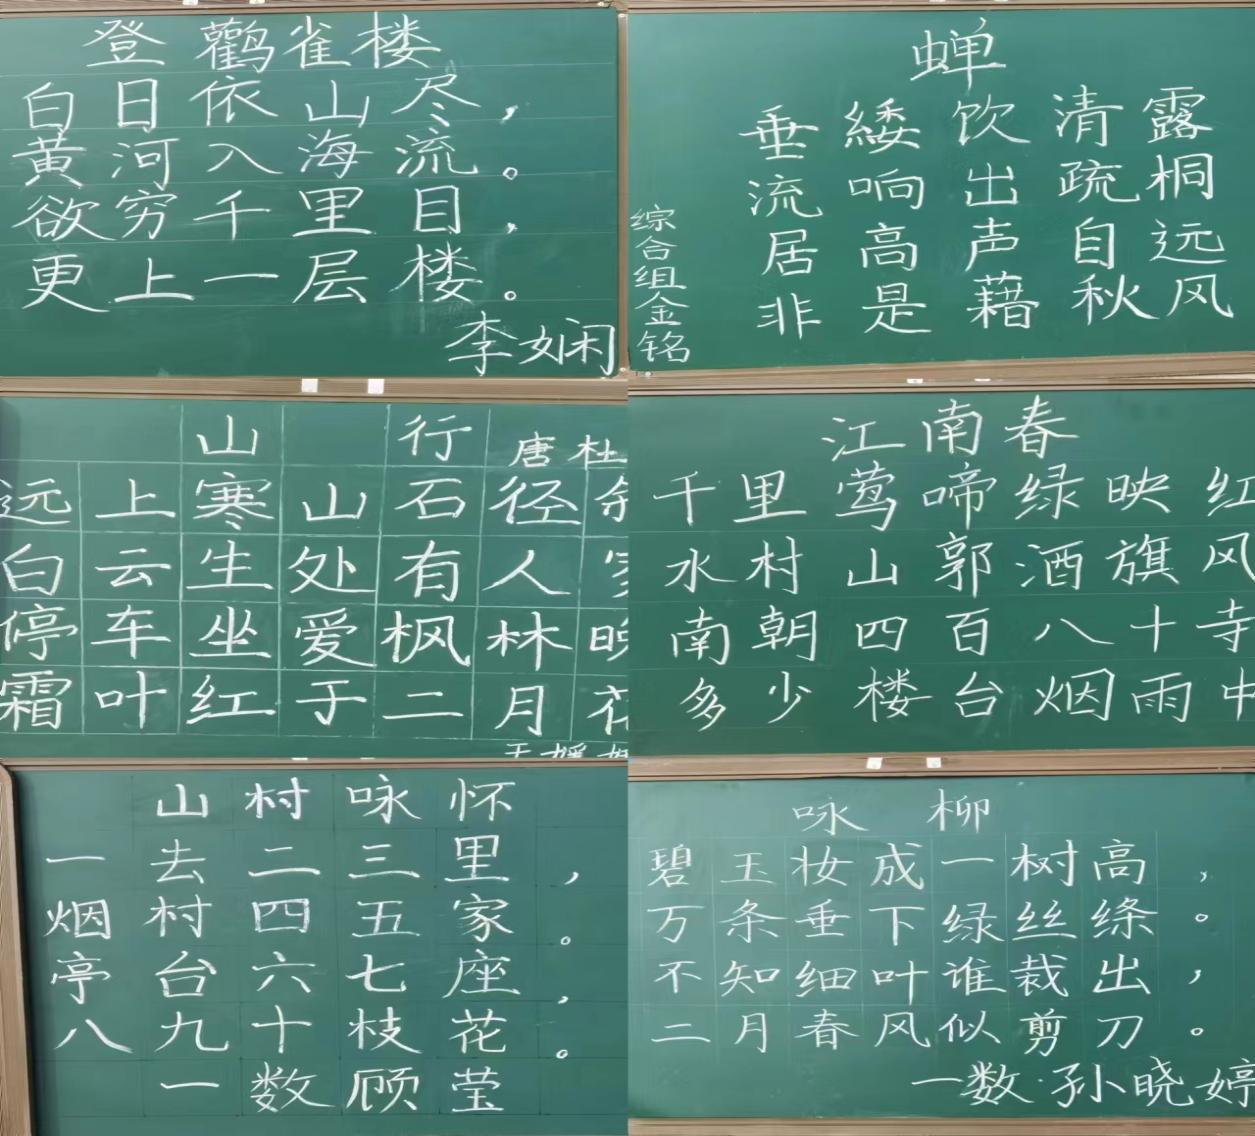 登鹳雀楼
白日依山尽，
黄河入海流。
欲穷千里目，
更上一层楼。
李娴
蝉
垂緌饮清露
流响出疏桐
居高声自远
非是藉秋风
综合组金铭
山行
唐杜
远上寒山石径
白云生处有人
停车坐爱枫林晚
霜叶红于二月花
江南春
千里莺啼绿映红
水村山郭酒旗风
南朝四百八十寺
多少楼台烟雨中
山村咏怀
一去二三里，
烟村四五家。
亭台六七座，
八九十枝花。
一数顾莹
咏柳
碧玉妆成一树高，
万条垂下绿丝绦。
不知细叶谁裁出，
二月春风似剪刀。
一数·孙晓婷